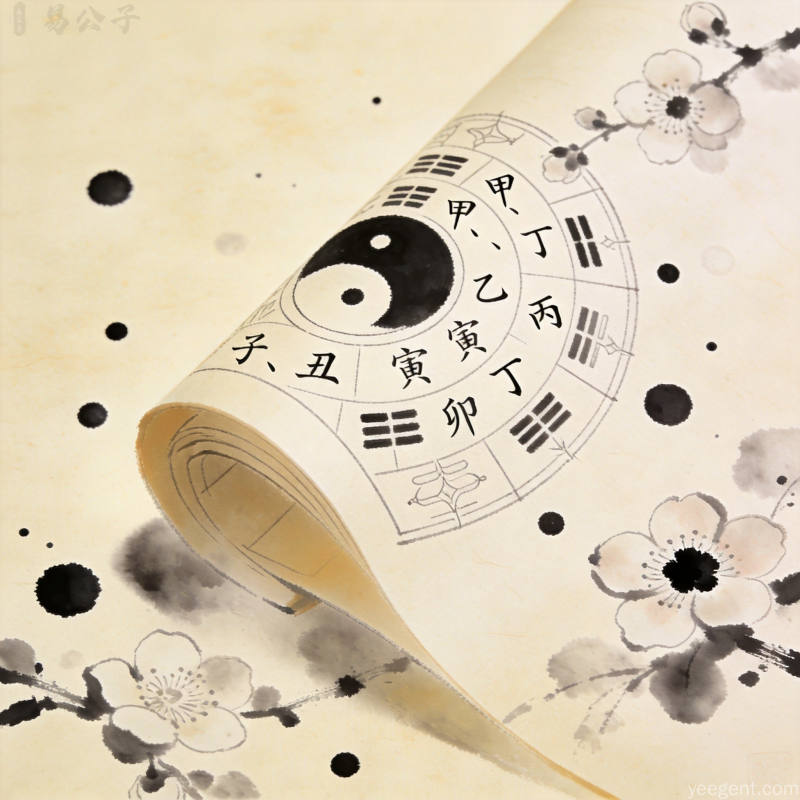 易公子
甲、
甲、
丁
乙
丙
子、丑
寅
寅
丁
卯
yeegent.com